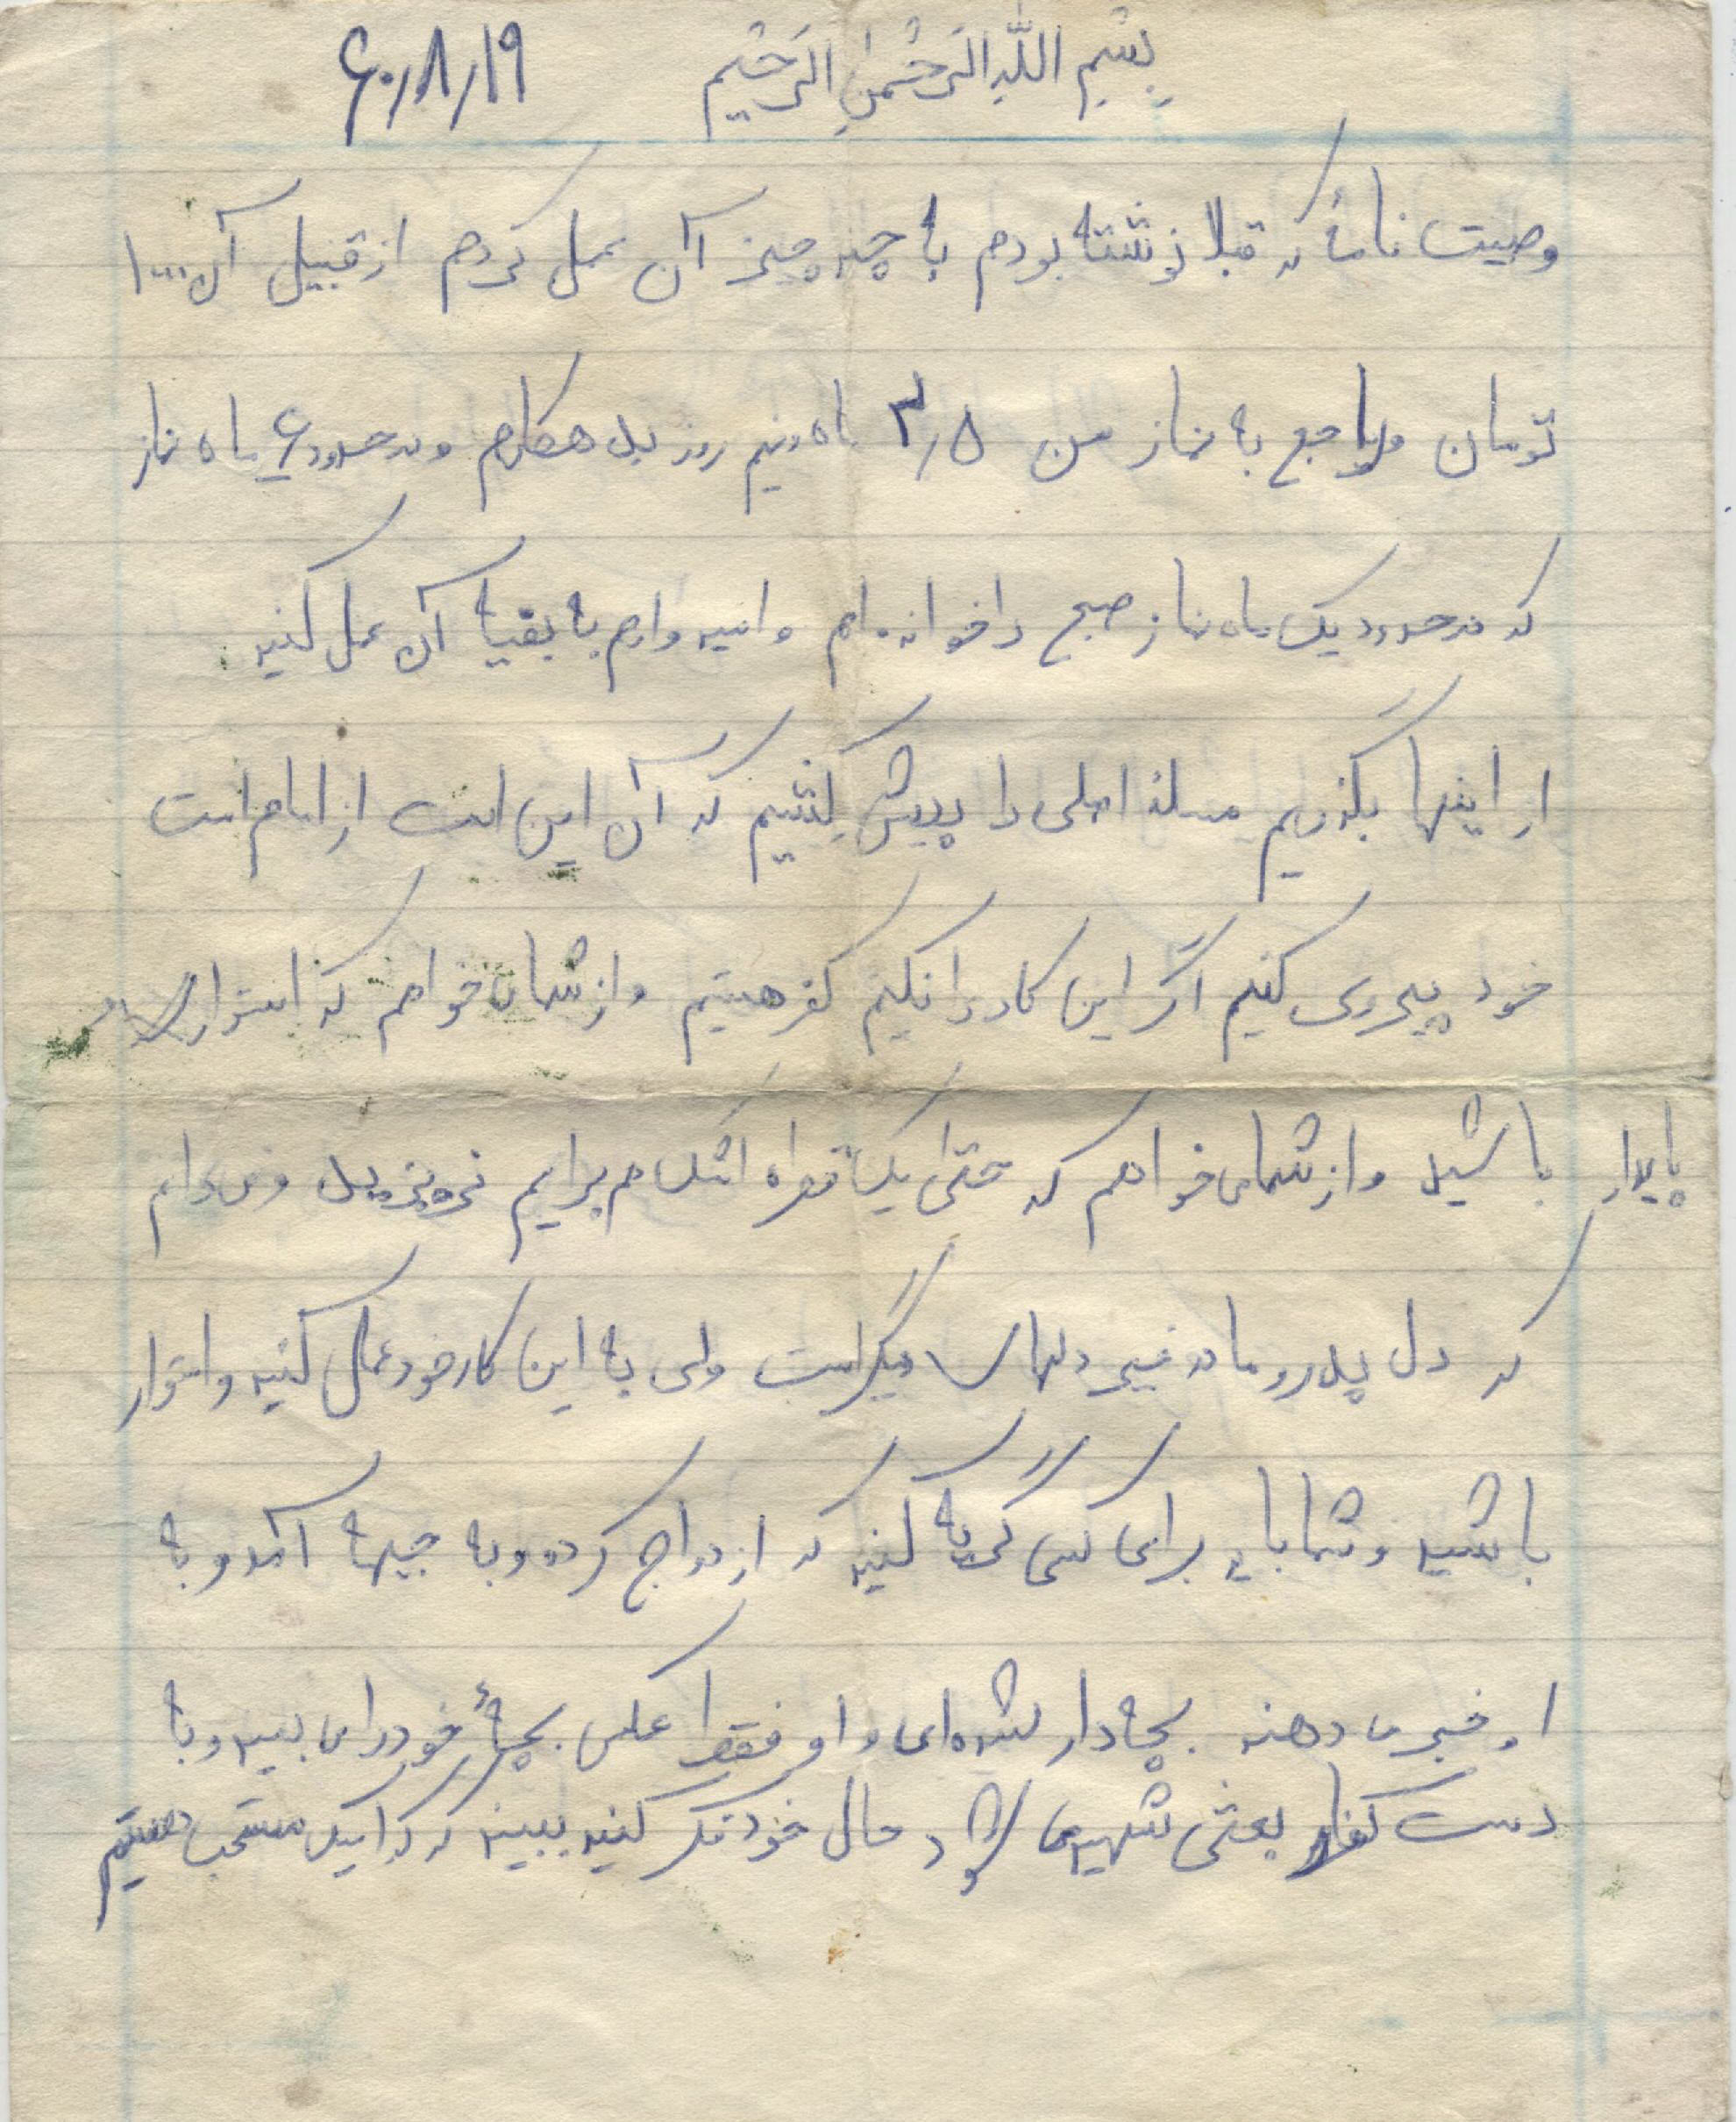 بِسْمِ اللّٰهِ الرَّحْمٰنِ الرَّحیْمِ ۶۰/۸/۱۹
وصیت نامهٔ که قبلا نوشته بودم به چند چیز آن عمل کردم از قبیل آن ۱۰۰۰
تومان و راجع به نماز من ۲/۵ ماه و نیم روزه بدهکارم و در حدود ۶ ماه نماز
که در حدود یک ماه نماز صبح را خوانده‌ام و امیدوارم به بقیه آن عمل کنید
از اینها بگذریم مسئله اصلی را پیش بکشیم که آن این است از امام امت
خود پیروی کنیم اگر این کار را نکنیم کفر هستیم و از شما می‌خواهم که استوار و
پایدار باشید و از شما می‌خواهم که حتی یک قطره اشک هم برایم نریزید و می‌دانم
که دل پدر و مادر غیر دلهای دیگر است ولی به این کار خود عمل کنید و استوار
باشید و شما باید برای کسی گریه کنید که ازدواج کرده و به جبهه آمد و به
او خبر می‌دهند بچه‌دار شده‌ای و او فقط عکس بچهٔ خود را می‌بیند و به
دست کفار بعثی شهید می‌شود حال خود فکر کنید ببیند که کدامیک مستحب هستیم